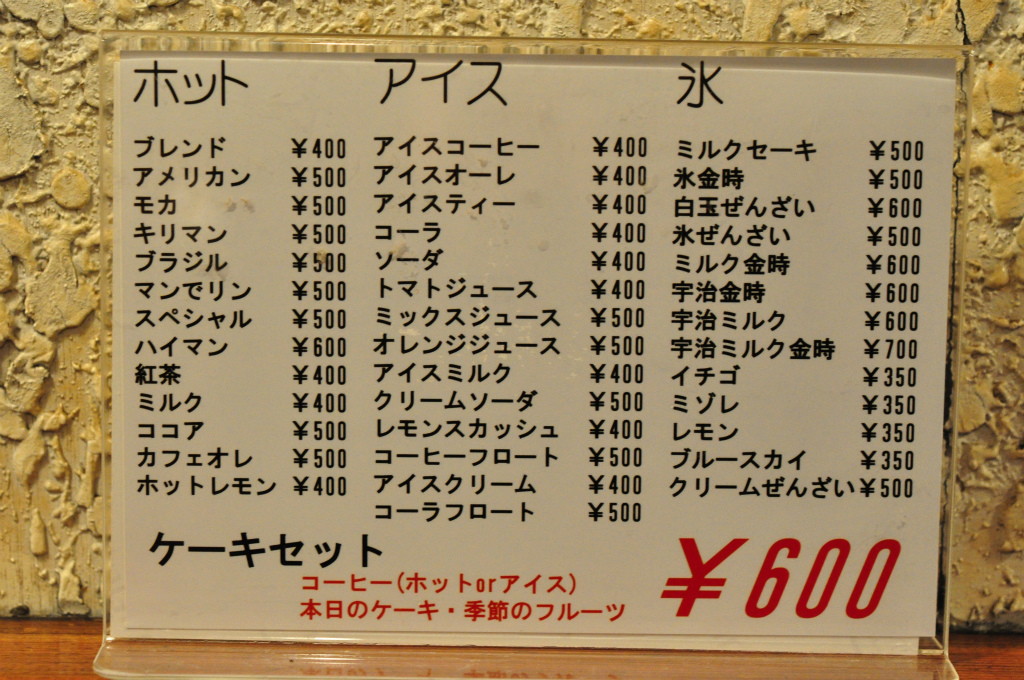 ホット
ブレンド ¥400
アメリカン ¥500
モカ ¥500
キリマン ¥500
ブラジル ¥500
マンでリン ¥500
スペシャル ¥500
ハイマン ¥600
紅茶 ¥400
ミルク ¥400
ココア ¥500
カフェオレ ¥500
ホットレモン ¥400
アイス
アイスコーヒー ¥400
アイスオーレ ¥400
アイスティー ¥400
コーラ ¥400
ソーダ ¥400
トマトジュース ¥400
ミックスジュース ¥500
オレンジジュース ¥500
アイスミルク ¥400
クリームソーダ ¥500
レモンスカッシュ ¥400
コーヒーフロート ¥500
アイスクリーム ¥400
コーラフロート ¥500
氷
ミルクセーキ ¥500
氷金時 ¥500
白玉ぜんざい ¥600
氷ぜんざい ¥500
ミルク金時 ¥600
宇治金時 ¥600
宇治ミルク ¥600
宇治ミルク金時 ¥700
イチゴ ¥350
ミゾレ ¥350
レモン ¥350
ブルースカイ ¥350
クリームぜんざい ¥500
ケーキセット ¥600
コーヒー(ホットorアイス)
本日のケーキ・季節のフルーツ